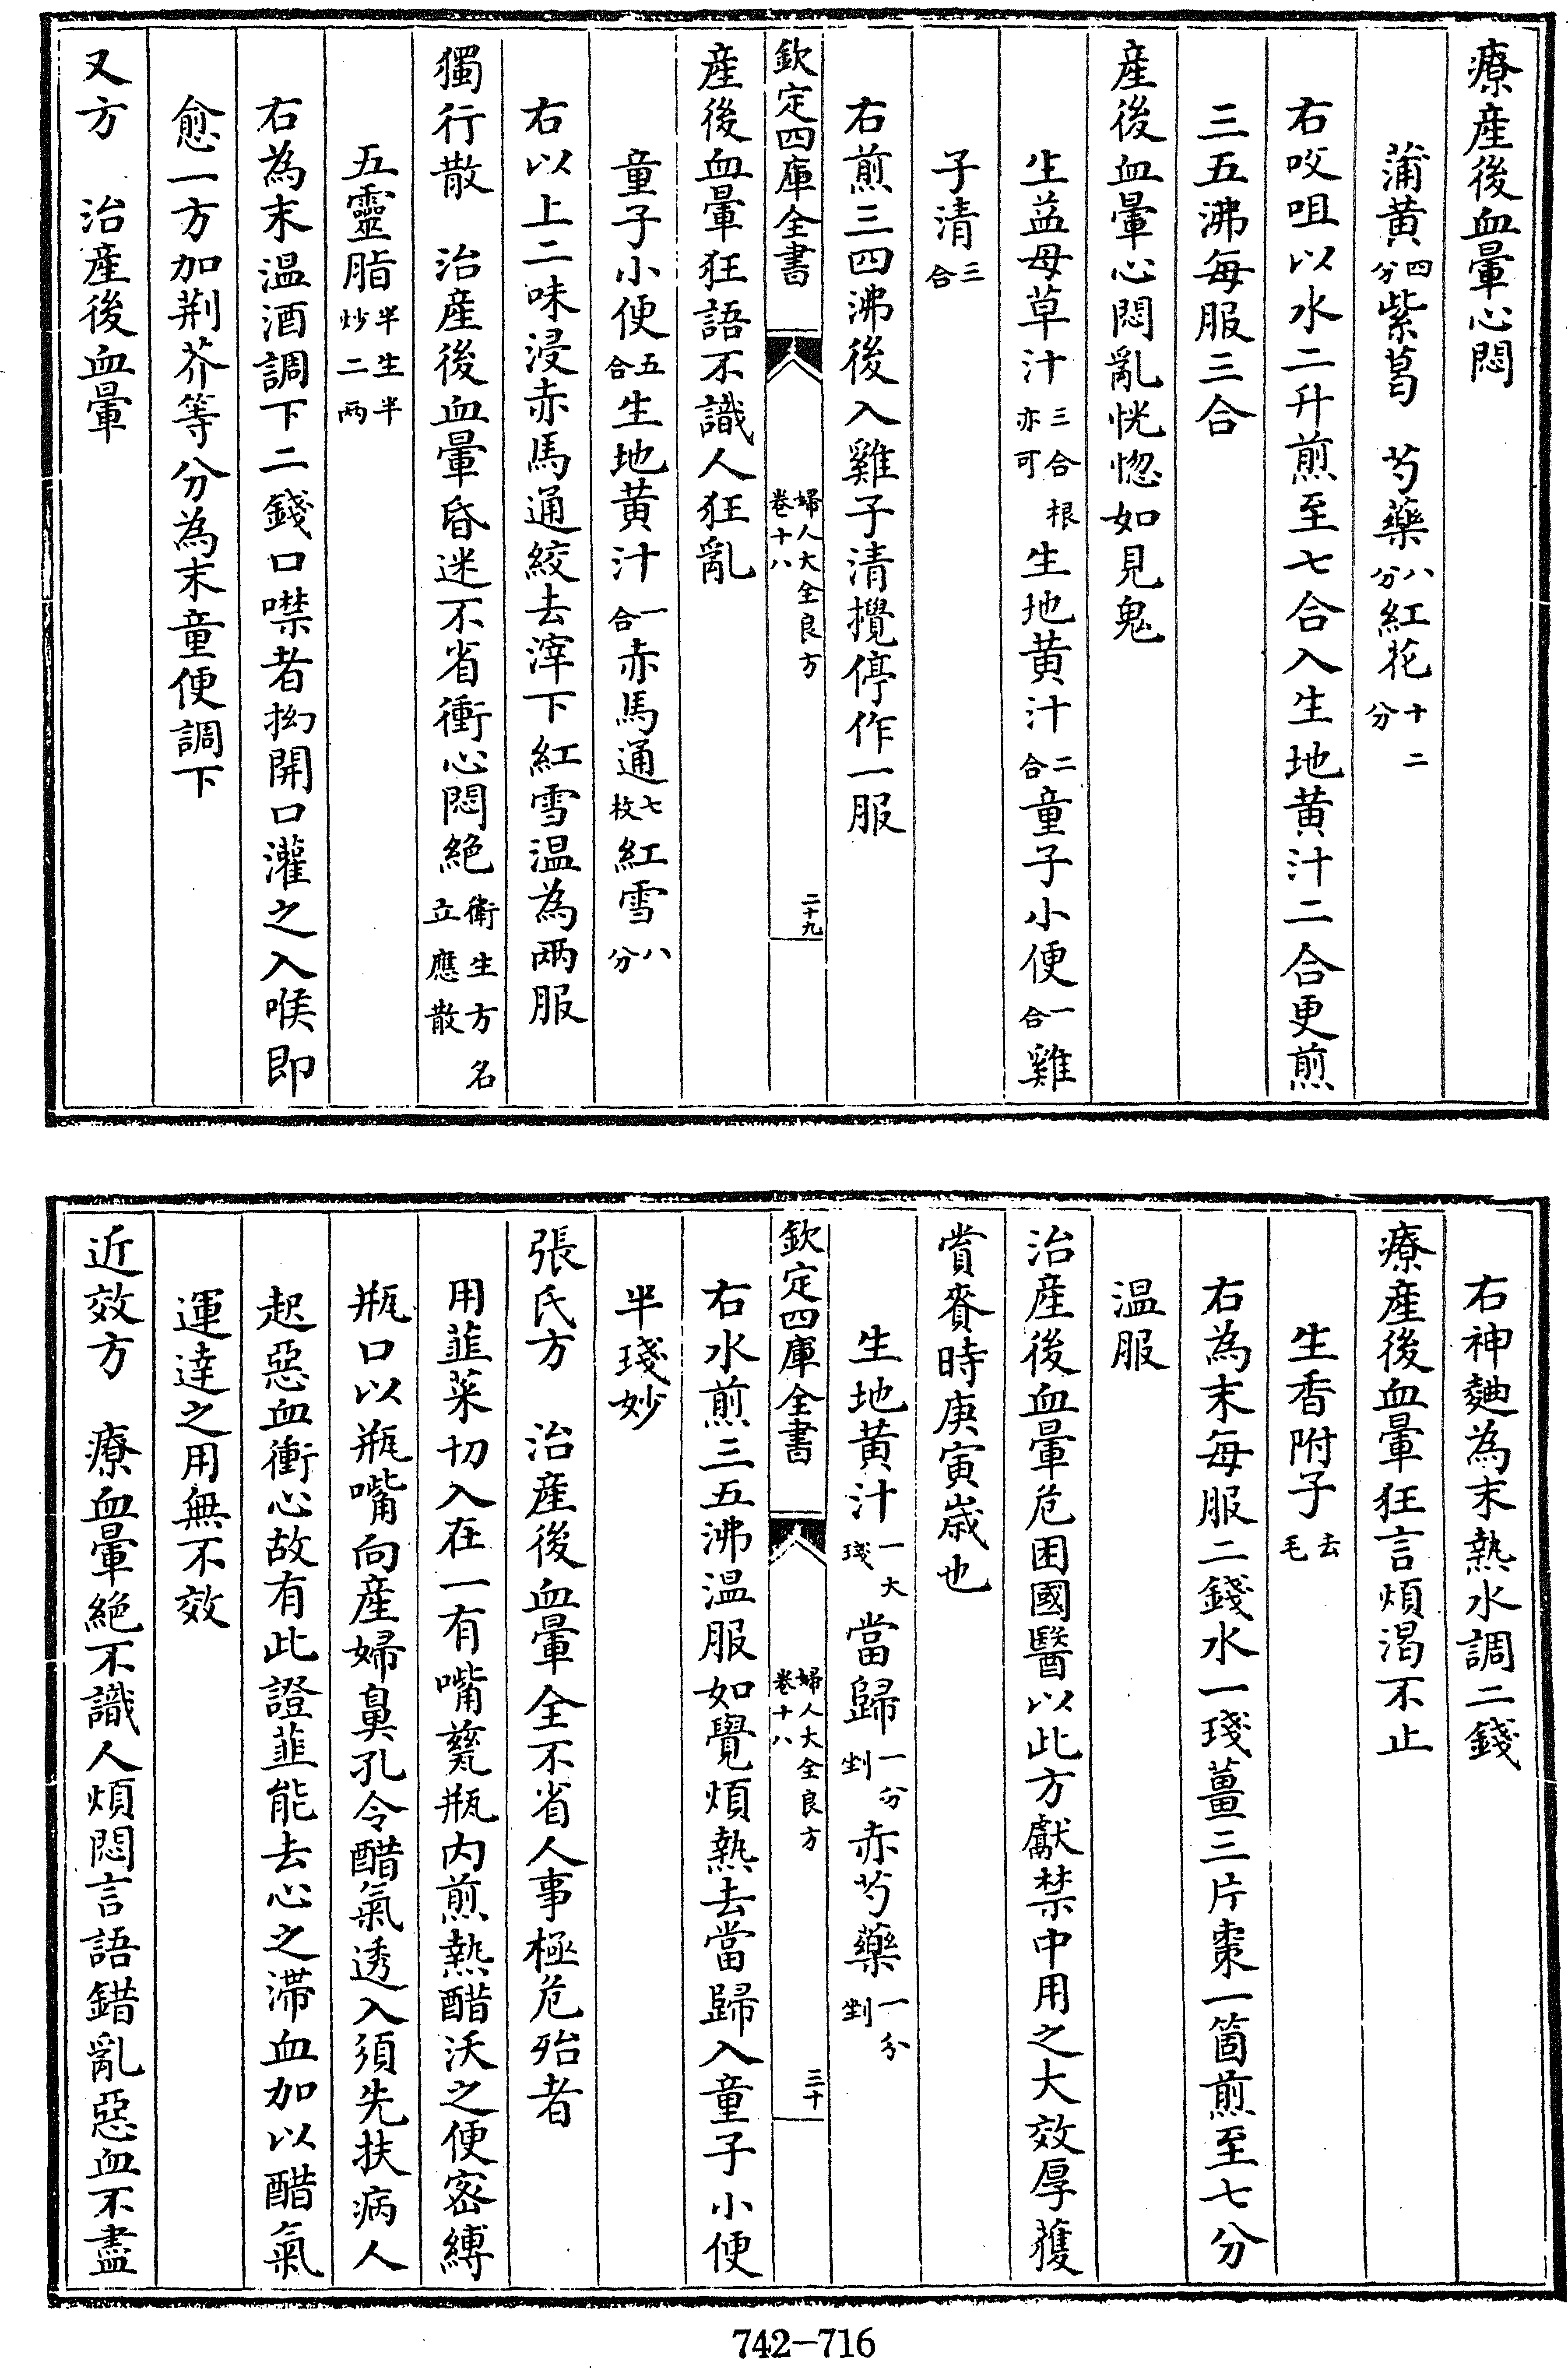 療產後血暈心悶
蒲黄四分紫葛　芍藥八分紅花十二分
右㕮咀以水二升煎至七合入生地黄汁二合更煎
三五沸每服三合
產後血暈心悶亂恍惚如見鬼
生益母草汁三合根亦可生地黄汁二合童子小便一合雞
子清三合
右煎三四沸後入雞子清攪停作一服
欽定四庫全書　婦人大全良方卷十八　二十九
產後血暈狂語不識人狂亂
童子小便五合生地黄汁一合赤馬通七枚紅雪八分
右以上二味浸赤馬通絞去滓下紅雪温為兩服
獨行散　治產後血暈昏迷不省衝心悶絶衛生方名立應散
五靈脂半生半炒二兩
右為末温酒調下二錢口噤者拗開口灌之入喉即
愈一方加荆芥等分為末童便調下
又方　治產後血暈
右神麯為末熱水調二錢
療產後血暈狂言煩渴不止
生香附子去毛
右為末每服二錢水一琖薑三片棗一箇煎至七分
温服
治產後血暈危困國醫以此方獻禁中用之大效厚獲
賞賚時庚寅歲也
生地黄汁一大琖當歸一分剉赤芍藥一分剉
欽定四庫全書　婦人大全良方卷十八　三十
右水煎三五沸温服如覺煩熱去當歸入童子小便
半琖妙
張氏方　治產後血暈全不省人事極危殆者
用韮菜切入在一有嘴甆瓶内煎熱醋沃之便密縛
瓶口以瓶嘴向產婦鼻孔令醋氣透入須先扶病人
起惡血衝心故有此證韮能去心之滯血加以醋氣
運達之用無不效
近效方　療血暈絶不識人煩悶言語錯亂惡血不盡
742-716